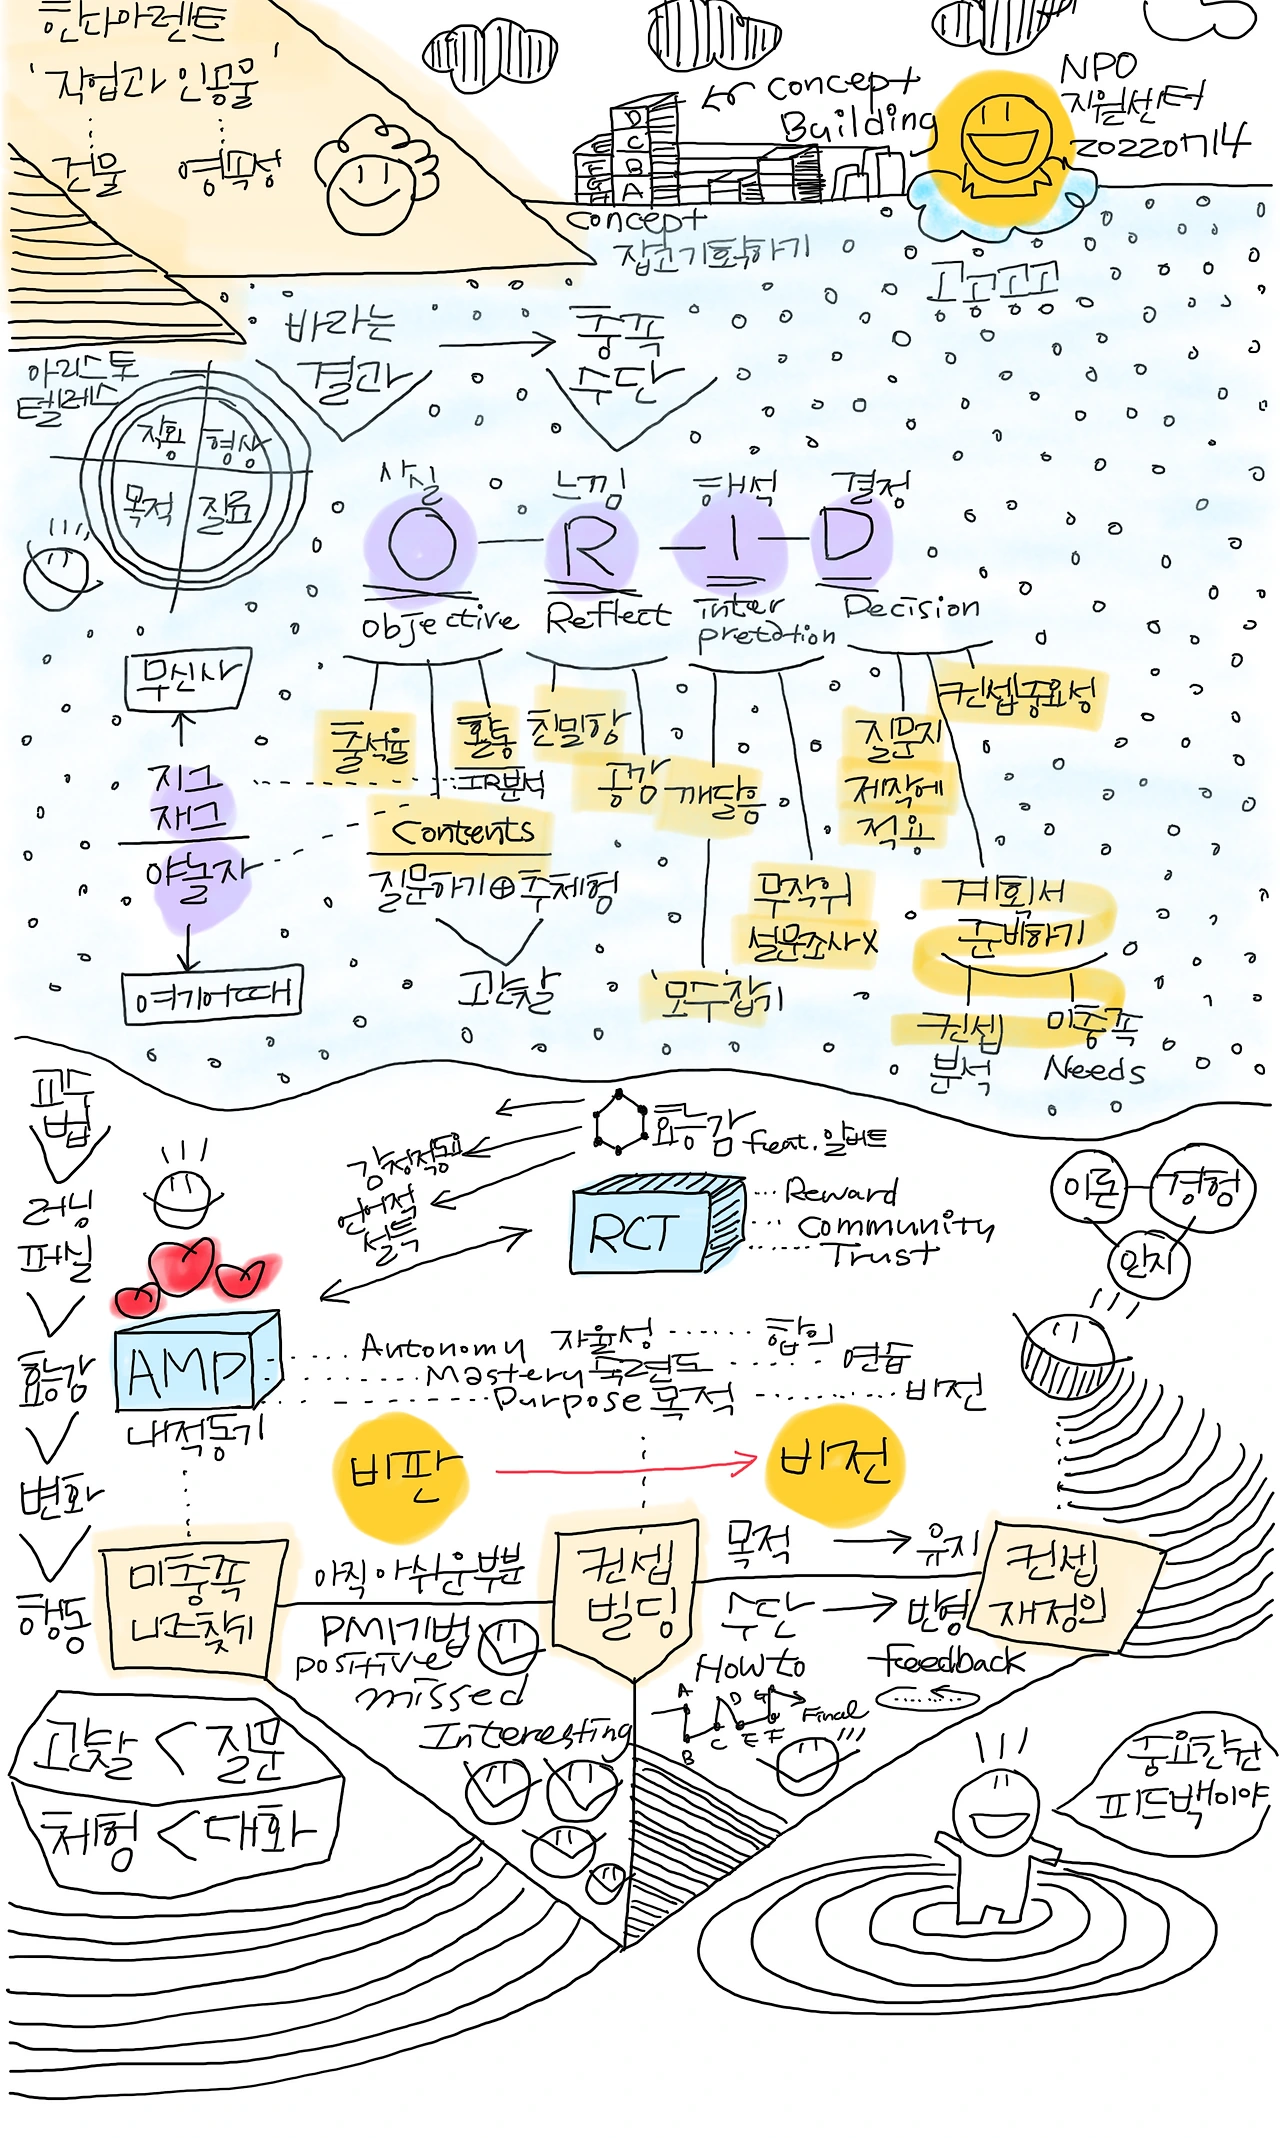 한나아렌트
'작업과 인공물'
건물 영속성
concept
Building
NPO
지원센터
20220714
D
C
E B
G A
concept
잡고기획하기
공공공공
바라는
결과
충족
수단
아리스토
텔레스
작용 형상
목적 질료
사실 느낌 해석 결정
O R I D
Objective
Reflect
inter
pretation
Decision
무신사
지그
재그
야놀자
여기어때
출석율
활동
IR분석
Contents
질문하기⊕주체험
관찰
친밀항
공감
깨달음
'모수'잡기
무작위
설문조사X
질문지
제작에
적용
컨셉중요성
계획서
준비하기
컨셉
분석
미충족
Needs
교수
법
러닝
퍼실
효능감
변화
행동
효능감 feat. 알버트
언어적
설득
RCT
Reward
Community
Trust
이론
경험
인지
AMP
내적동기
Autonomy 자율성 합의
Mastery 숙련도 연습
Purpose 목적 비전
비판
비전
미충족
니즈찾기
아직 아쉬운부분
PMI기법
positive
missed
Interesting
컨셉
빌딩
목적 유지
수단 반영
How to
feedback
A D G
B C E F
Final
컨셉
재정의
관찰 < 질문
체험 < 대화
중요한건
피드백이야